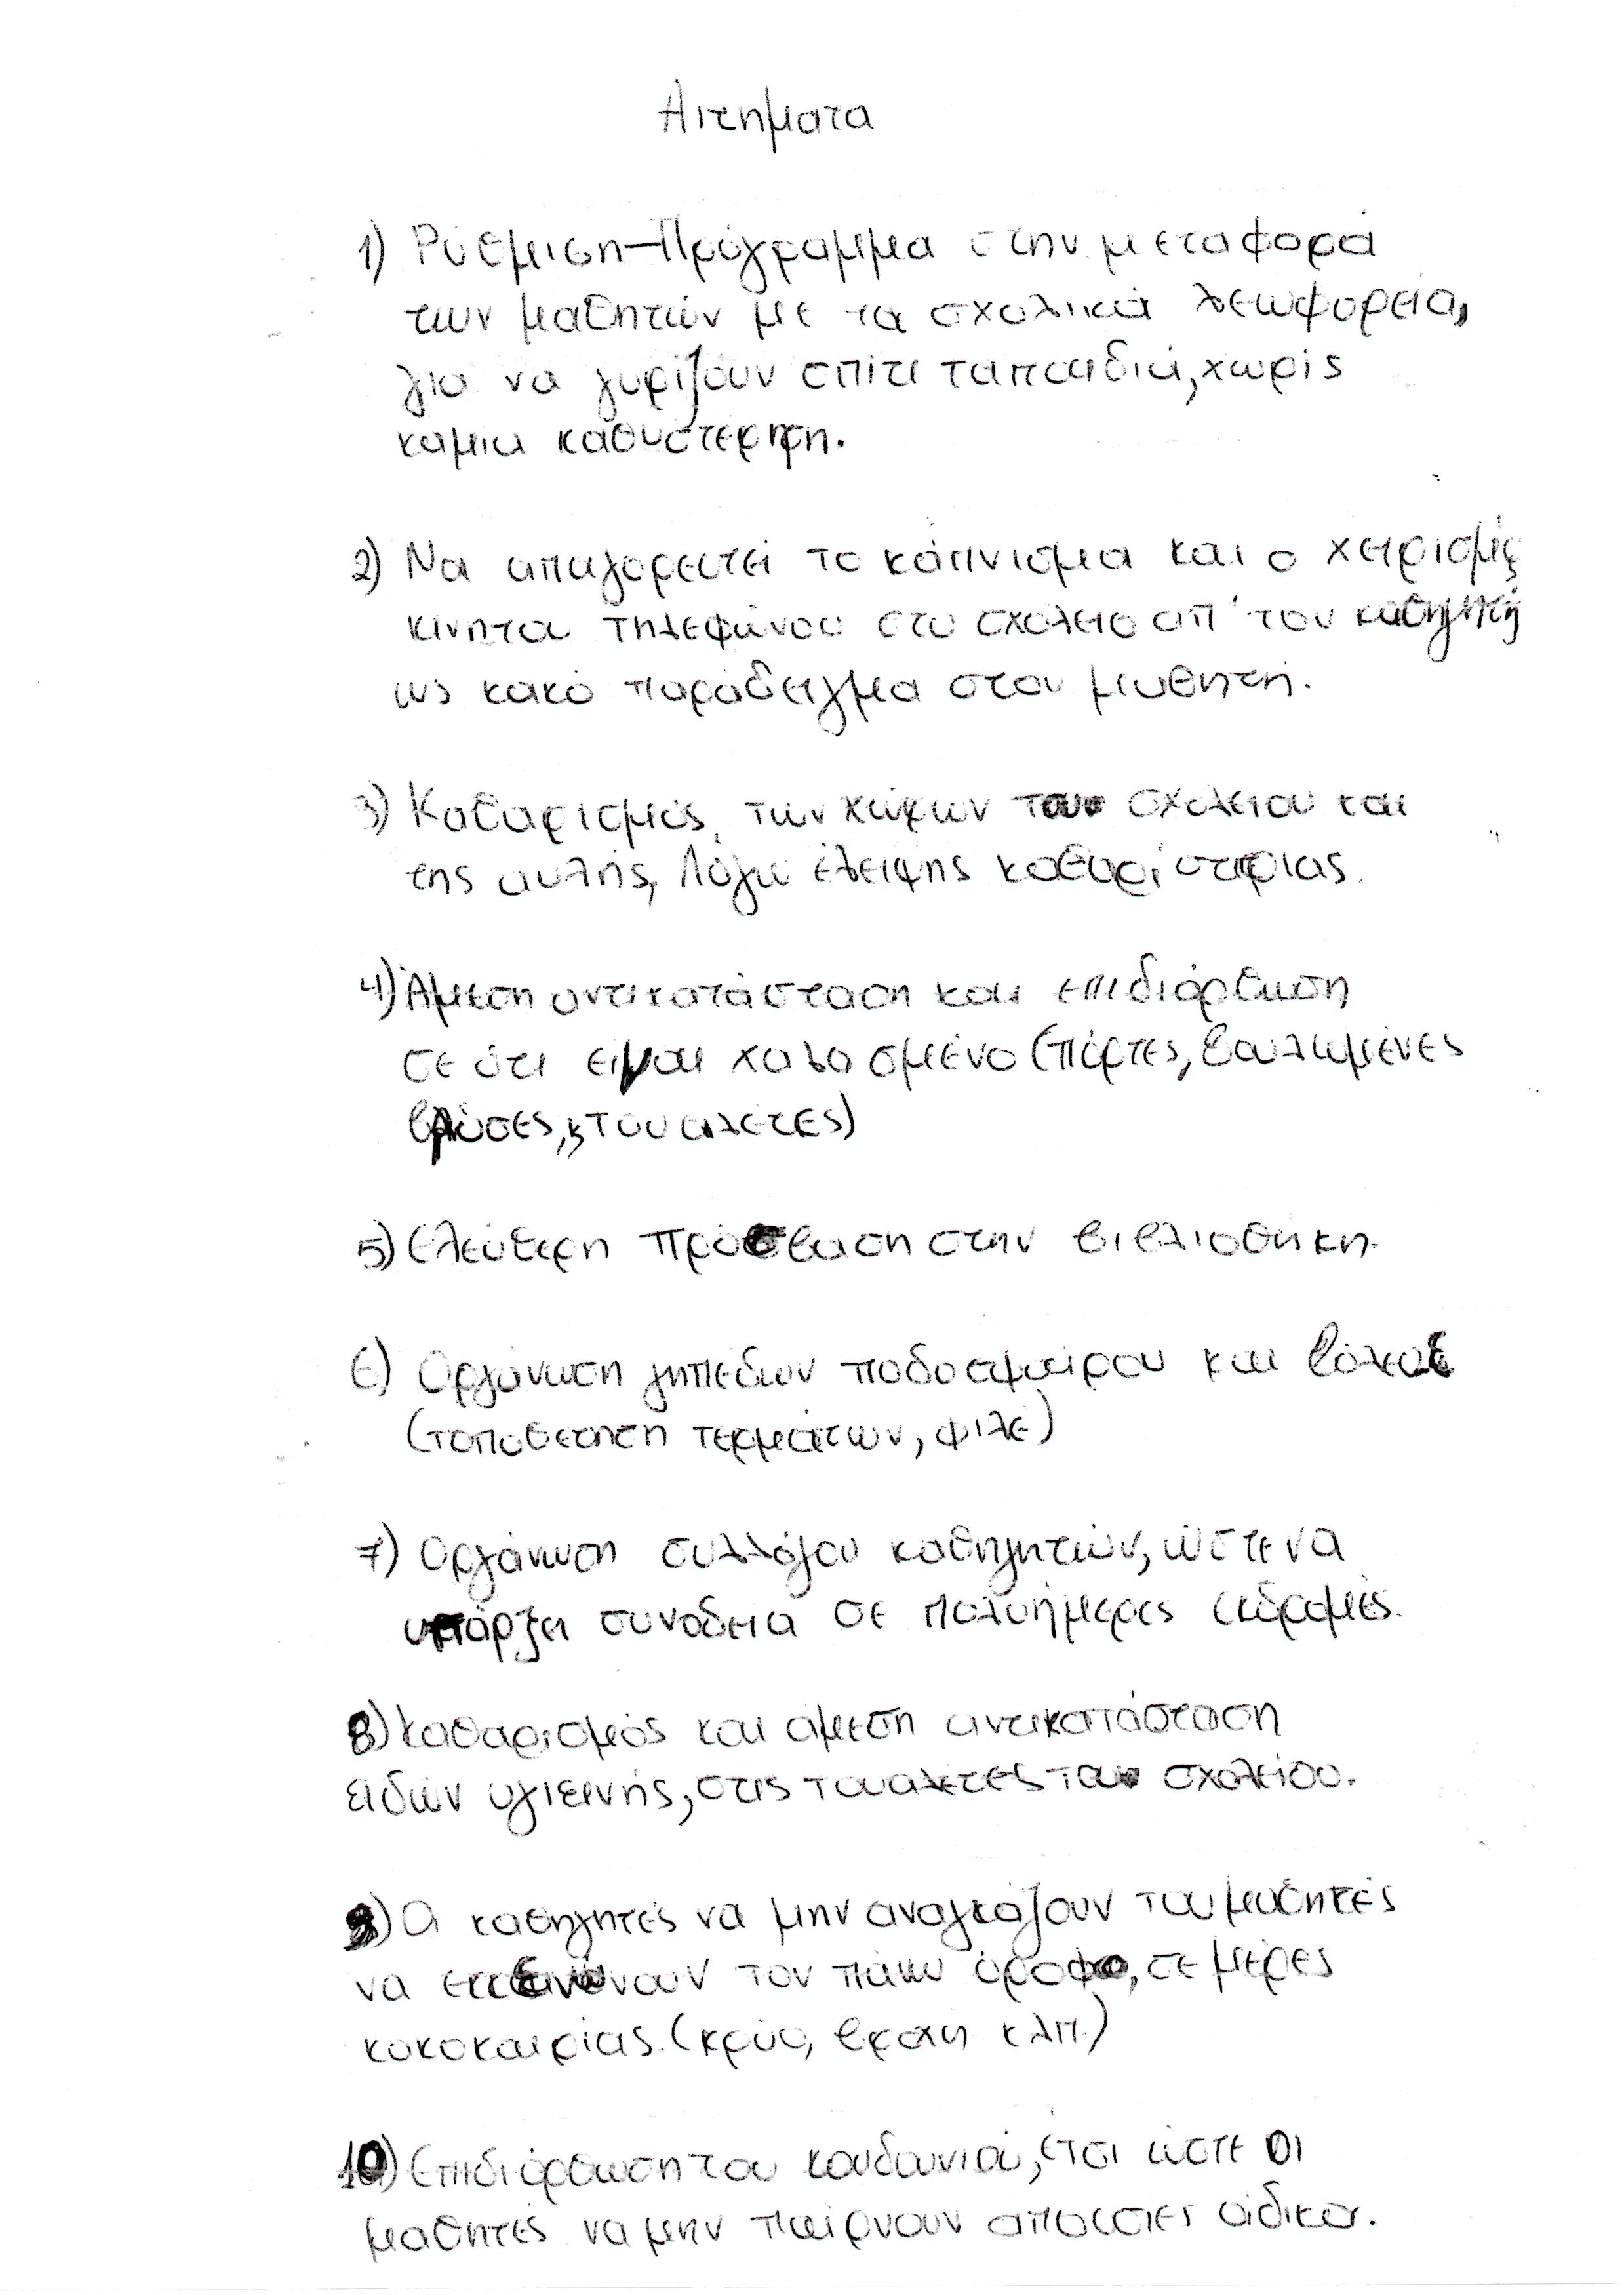 Αιτηματα
1) Ρύθμιση-Πρόγραμμα στην μεταφορά
των μαθητών με τα σχολικά λεωφορεία,
για να γυρίζουν σπίτι τα παιδιά, χωρίς
καμια καθυστέρηση.
2) Να απαγορευτεί το κάπνισμα και ο χειρισμός
κινητου τηλεφώνου στο σχολειο απ' τον καθηγητή
ως κακό παράδειγμα στον μαθητή.
3) Καθαρισμός, των χώρων του σχολειου και
της αυλής, λόγω έλειψης καθαρίστριας.
4) Άμεση αντικατάσταση και επιδιόρθωση
σε ότι ειναι χαλασμένο (πόρτες, βουλωμένες
βρύσες, τουαλέτες)
5) Ελεύθερη πρόσβαση στην βιβλιοθήκη.
6) Οργάνωση γηπέδων ποδοσφαίρου και βόλευ
(τοποθέτηση τερμάτων, φιλέ)
7) Οργάνωση συλλόγου καθηγητών, ώστε να
υπάρξει συνοδεια σε πολυήμερες εκδρομές.
8) Καθαρισμός και άμεση αντικατάσταση
ειδών υγιεινής, στις τουαλέτες του σχολείου.
9) Οι καθηγητές να μην αναγκάζουν του μαθητές
να εκκενώνουν τον πάνω όροφο, σε μέρες
κακοκαιρίας. (κρύο, βροχη κλπ.)
10) Επιδιόρθωση του κουδουνιού, έτσι ώστε οι
μαθητές να μην παίρνουν απουσιες άδικα.